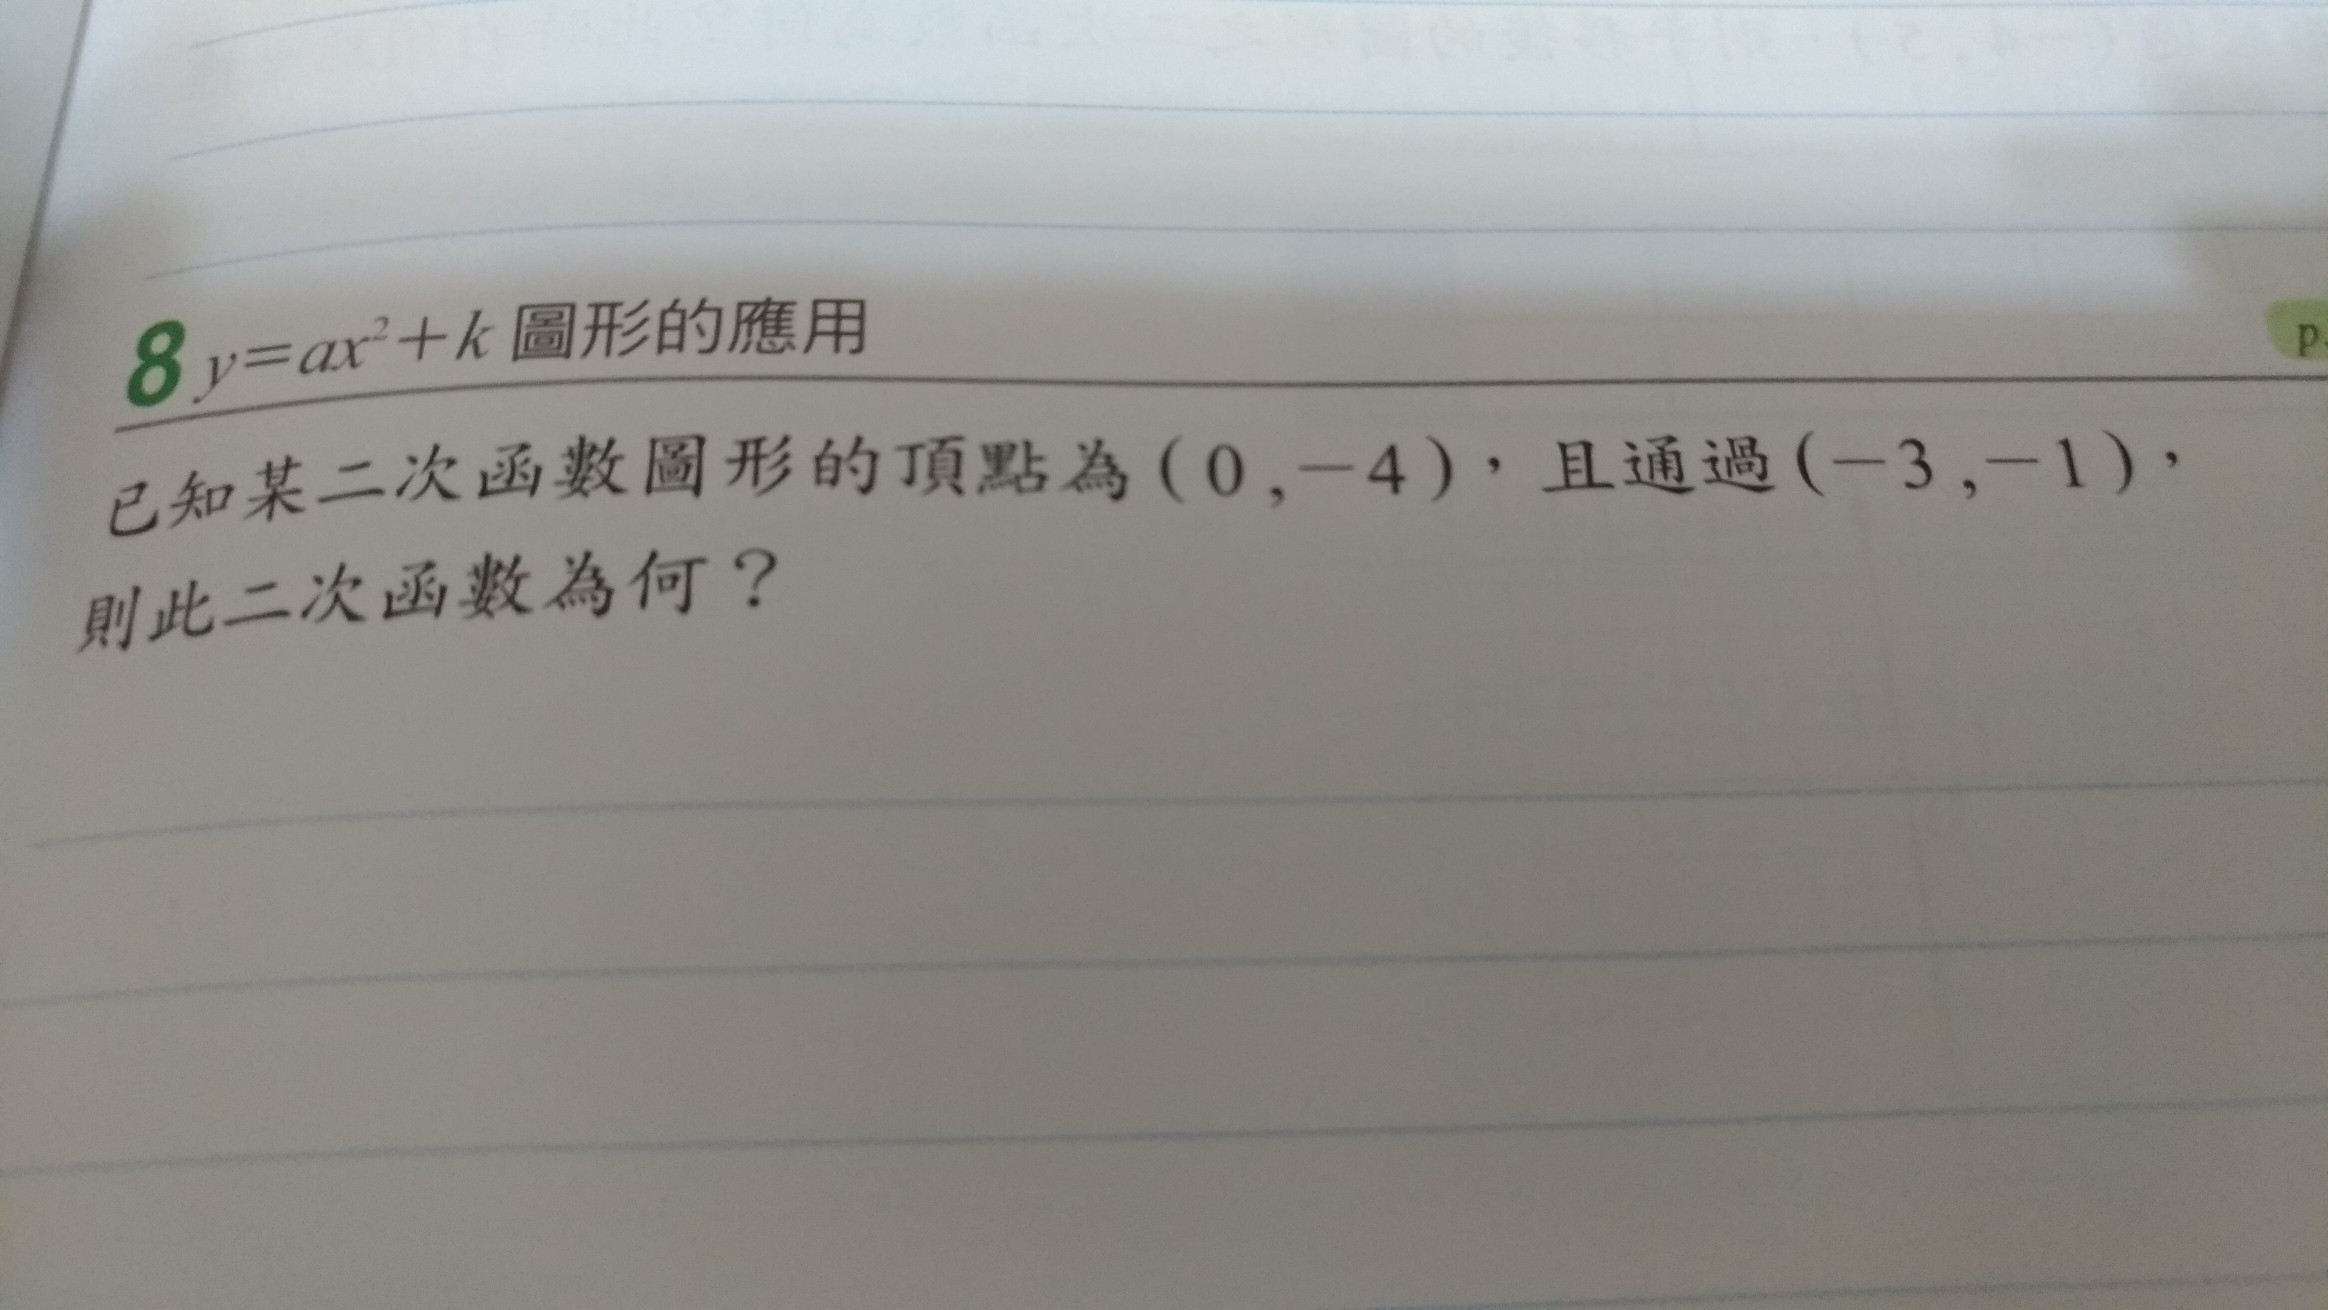 8 y=ax²+k 圖形的應用
p.
已知某二次函數圖形的頂點為(0,-4),且通過(-3,-1),
則此二次函數為何?